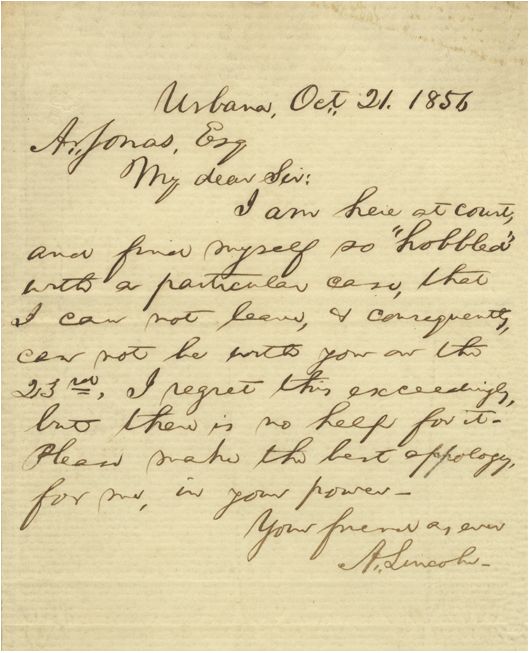 Urbana, Oct. 21. 1856
A. Jonas, Esq
My dear Sir:
I am here at court,
and find myself so "hobbled"
with a particular case, that
I can not leave, & consequently,
can not be with you on the
23rd. I regret this exceedingly,
but there is no help for it-
Please make the best appology,
for me, in your power-
Your friend as ever
A. Lincoln-